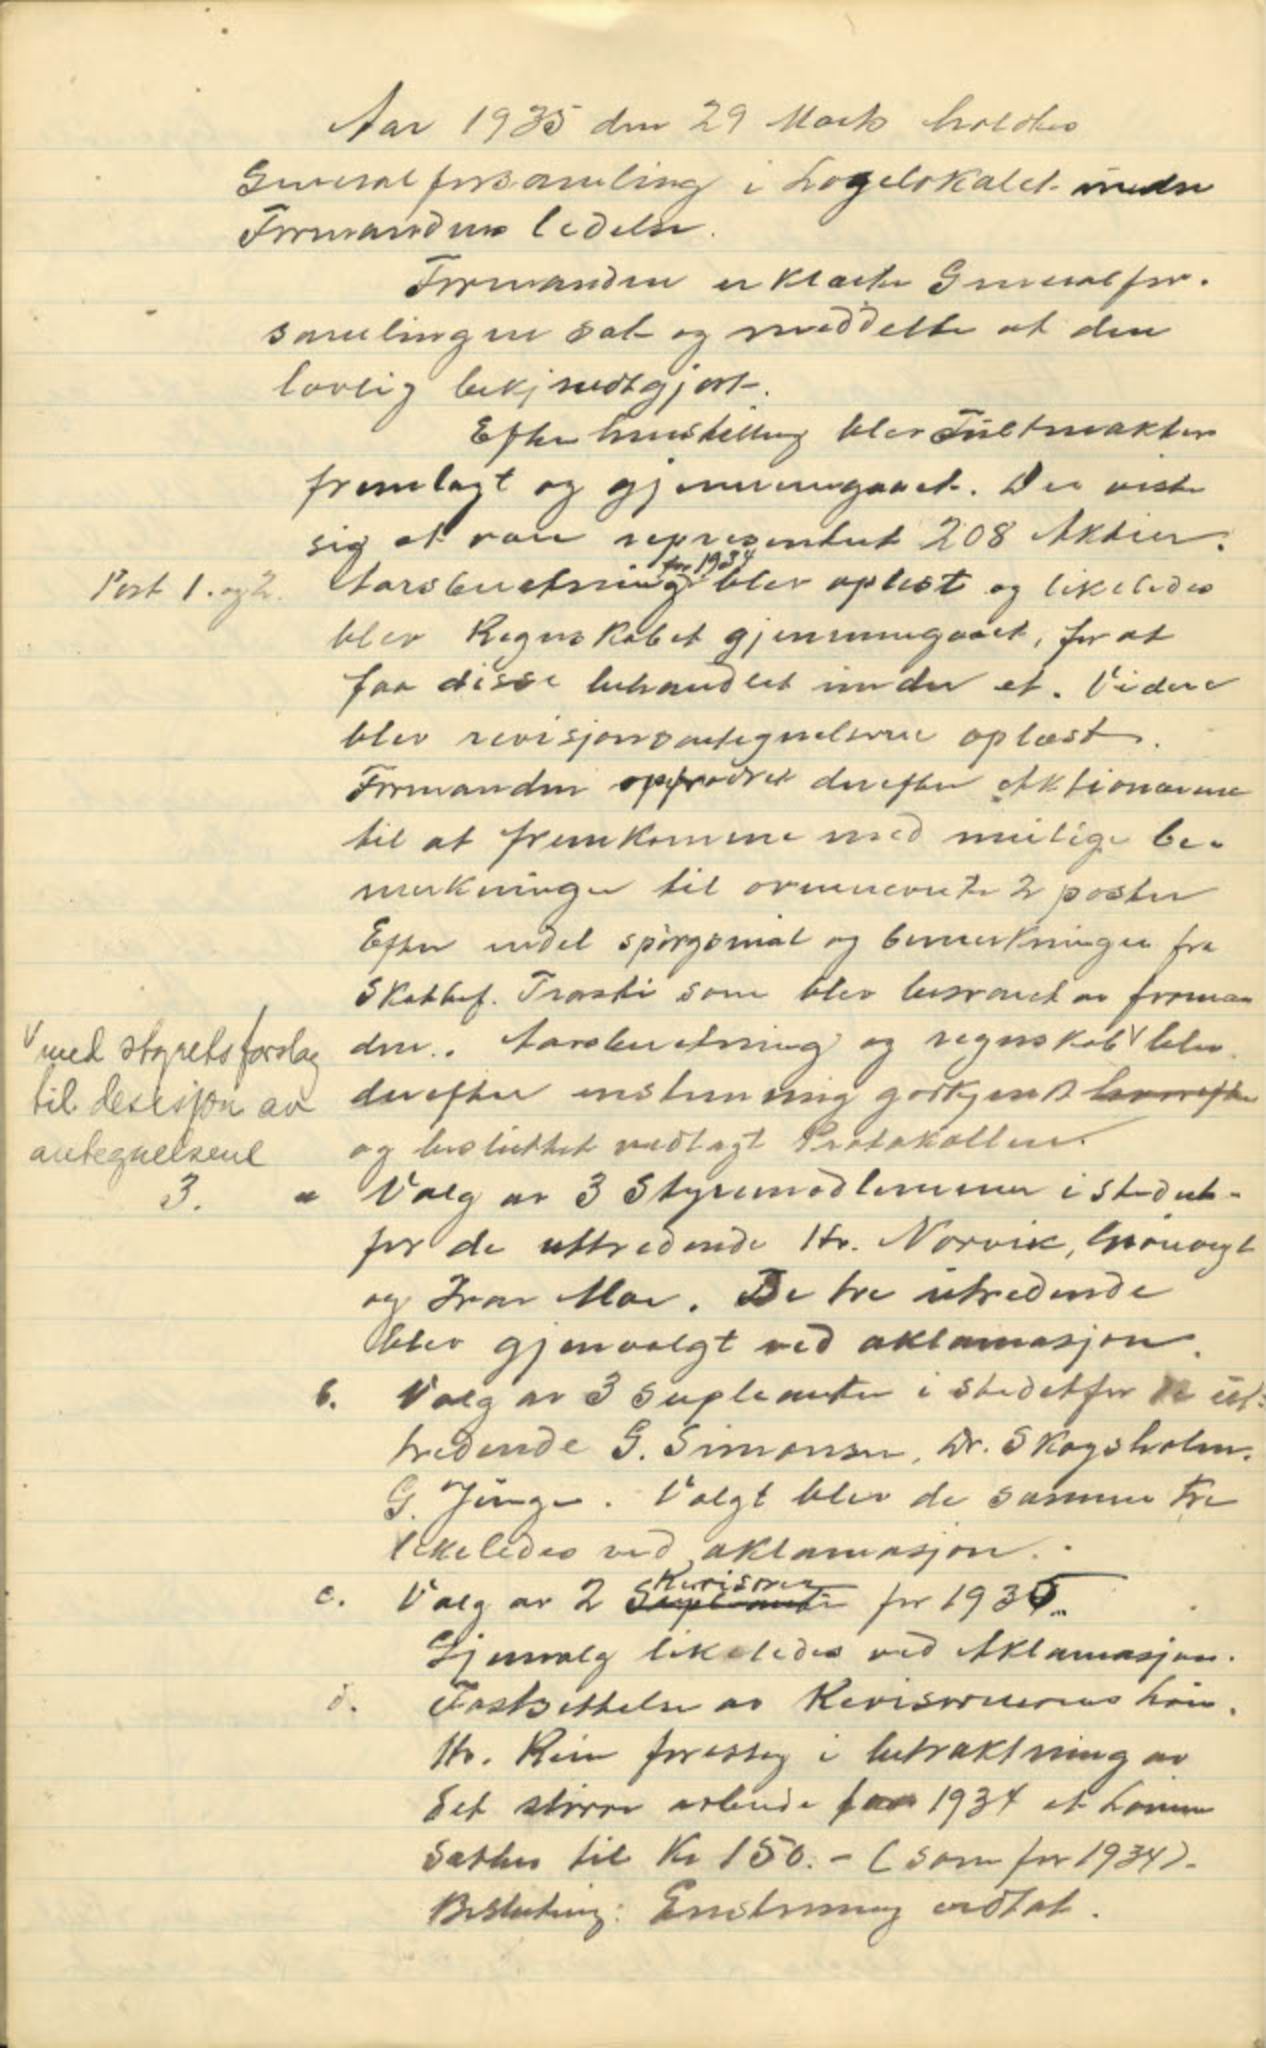 Aar 1935 den 29 Marts holdtes
Generalforsamling i Logelokalet under
Formandens ledelse.
Formanden erklærte Generalfor-
samlingen sat og meddelte at den
lovlig bekjendtgjort.
Efter henstilling blev Fuldmakter
fremlagt og gjennemgaaet. Det viste
sig at være representert 208 Aktier.
Post 1. og 2.
Aarsberetning for 1934 blev oplest og likeledes
blev Regnskabet gjennemgaaet, for at
faa disse behandlet under et. Videre
blev revisjonsantegnelserne oplæst.
Formanden opfordret derefter Aktionærerne
til at fremkomme med mulige be-
merkninger til ovennevnte 2 poster
Efter endel spørgsmål og bemerkninger fra
Skattef. som blev besvaret av forman
den. Aarsberetning og regnskab v blev
v med styrets forslag
til desisjon av
antegnelsene
derefter enstemmig godkjent hvorefter
og besluttet vedlagt Protokollen.
3. a Valg av 3 Styremedlemmer i stedet-
for de uttredende Hr. Norvik,
og Ivar Moe. De tre utredende
blev gjenvalgt ved aklamasjon.
b. Valg av 3 Supleanter i stedetfor de ut-
tredende G. Simonsen, Dr. Skogsholm.
G. Jünge. Valgt blev de samme tre
likeledes ved aklamasjon.
c. Valg av 2 Supleanter Revisorer for 1935.
Gjenvalg likeledes ved Aklamasjon.
d. Fastsettelse av Revisorernes høn.
Hr. foresleg i betraktning av
det større arbeide for 1934 at Lønnen
sættes til Kr 150.- (som for 1934).
Beslutning: Enstemmig vedtat.